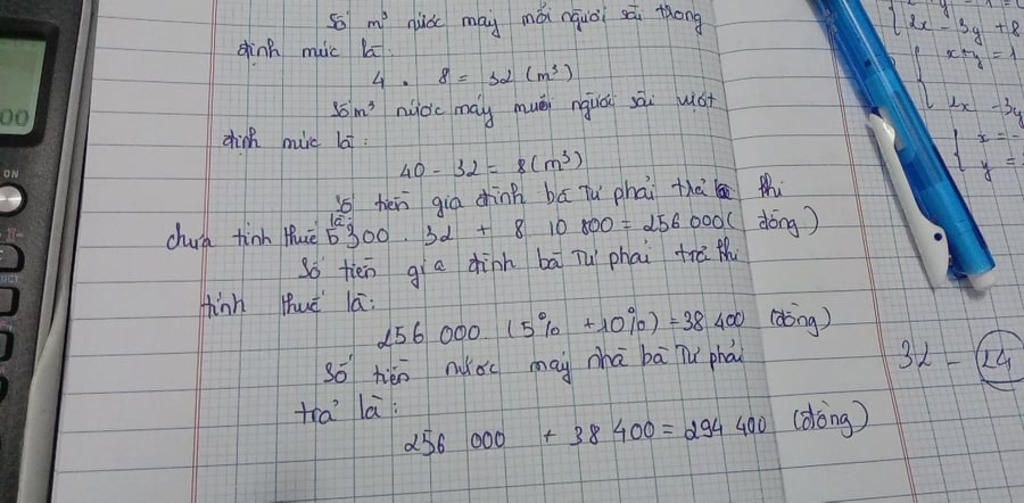 Số m³ nước máy mỗi người sài trong
định mức là:
4 . 8 = 32 (m³)
Số m³ nước máy mười người sài vượt
định mức là:
40 - 32 = 8 (m³)
Số tiền gia đình bà Tư phải trả khi
chưa tính thuế là: 5 300 . 32 + 8 10 800 = 256 000 ( đồng)
Số tiền gia đình bà Tư phải trả thi
tính thuế là:
256 000 (5% + 10%) = 38 400 (đồng)
Số tiền nước máy nhà bà Tư phải
trả là:
256 000 + 38 400 = 294 400 (đồng)
2x - 3y + 8
x + y = 1
2x - 3y
x = -
y =
32 - 24
00
ON